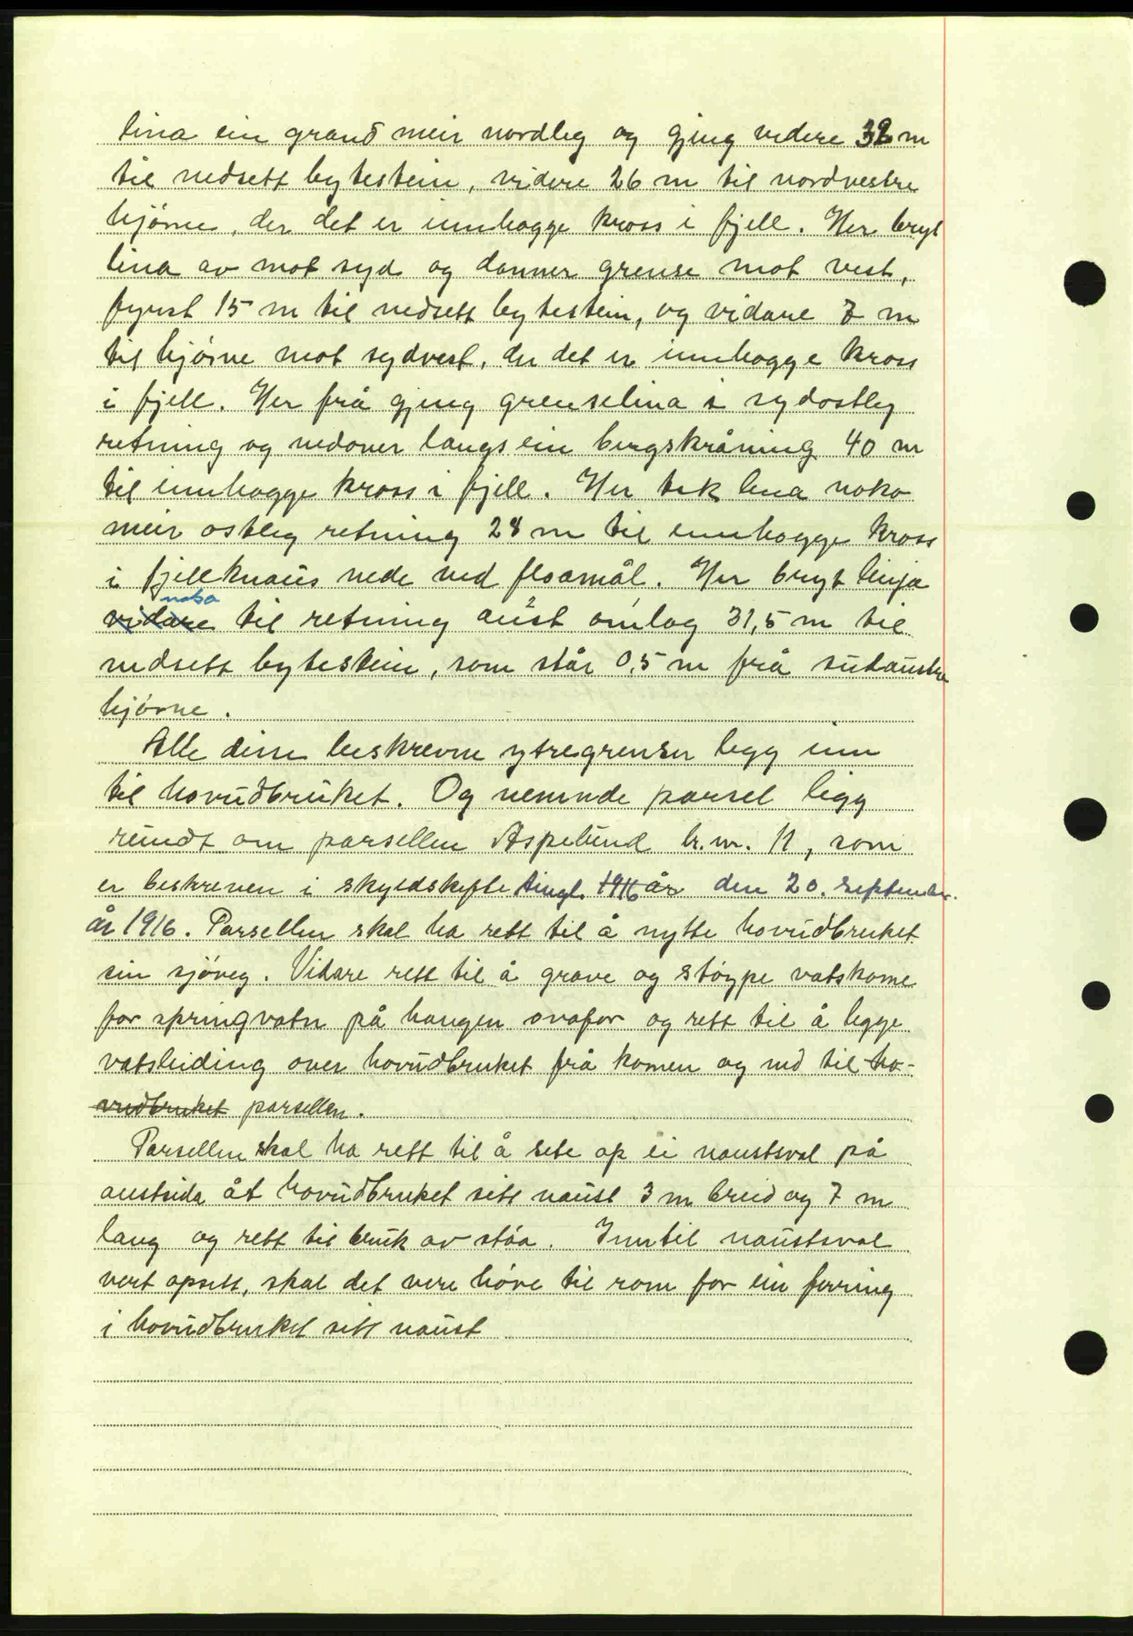 lina ein grand meir nordleg og gjeng videre 38 m
til nedsett bytestein, vidare 26 m til nordvestre
hjörne, der det er innhogge kross i fjell. Her bryt
lina av mot syd og danner grense mot vest,
fyrst 15 m til nedsett bytestein, og vidare 7 m
til hjörne mot sydvest, der det er innhogge kross
i fjell. Her frå gjeng grenselina i sydostleg
retning og nedover langs ein bergskråning 40 m
til innhogge kross i fjell. Her tek lina noko
meir ostleg retning 28 m til innhogge kross
i fjellknaus nede ved floamål. Her bryt linja
noko
vidare til retning aust omlag 31,5 m til
nedsett bytestein, som står 0,5 m frå sudaustre
hjörne.
Alle disse beskrevne ytregrenser legg inn
til hovudbruket. Og nemnde parsel ligg
rundt om parsellen Aspelund br.nr. 11, som
er beskreven i skyldskifte tingl. 1916 år den 20. september
år 1916. Parsellen skal ha rett til å nytte hovudbruket
sin sjöveg. Vidare rett til å grave og stöype vatskome
for springvatn på haugen ovafor og rett til å legge
vatsleiding over hovudbruket frå komen og ned til ho-
vudbruket parsellen.
Parsellen skal ha rett til å sete op ei naustsval på
austsida åt hovudbruket sitt naust 3 m breid og 7 m
lang og rett til bruk av stöa. Inntil naustsval
vert opsett, skal det vere höve til rom for ein færing
i hovudbruket sitt naust